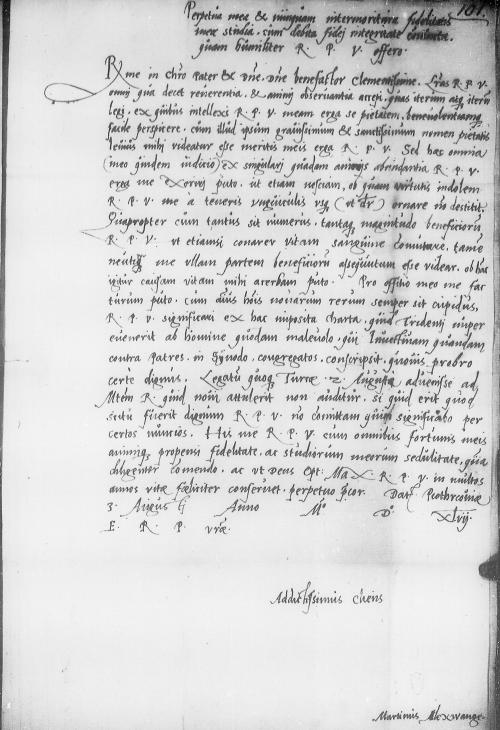 101.
Perpetua mea & nunquam intermoritura fidelitatis
meæ studia cum debita fidej integritate coniuncta
quam humiliter R. P. V. offero.
Rme in Chro Pater & Dne, Dne benefactor Clementissime. Lras R. P. V.
omnj qua decet reuerentia, & animj obseruantia accepi, quas iterum atq iterum
legj, ex quibus intellexi R. P. V. meam erga se pietatem, beneuolentiamq
facile perspicere, cum illud ipsum grauissimum & sanctissimum nomen pietatis
leuius mihi videatur esse meritis meis erga R. P. V. Sed hæc omnia
(meo quidem iudicio) ex singularj quadam animj abundantia R. P. V.
erga me exorirj puto, ut etiam nesciam, ob quam virtutis indolem
R. P. V. me a teneris vnguiculis vsq (vt dr) ornare no destitit.
Quapropter cum tantus sit numerus, tantaq magnitudo beneficioru
R. P. V. ut etiamsi conarer vitam sanguine comutare, tame
neutiq me vllam partem beneficioru assequutum esse videar, ob hac
igitur causam vitam mihi acerbam puto. Pro offitio meo me fac
turum puto, cum auis hois nouarum rerum semper sit cupidus,
R. P. V. significari ex hac imposita charta, quid Tridentj nuper
euenerit ab homine quodam maleuolo, qui Inuectiuam quandam
contra Patres in Synodo congregatos, conscripsit, quouis probro
certe dignus. Legatu quoq Turcæ 2. Augustj aduenisse ad
Mtem R. quid nom attulerit non auditur, si quid erit quod
scitu fuerit dignum R. P. V. no comittam quin significabo per
certos nuncios. Hij me R. P. V. cum omnibus fortunis meis
animiq propensi fidelitate, ac studiorum meorum sedulitate, qua
diligenter comendo, ac vt Deus Opt: Max R. P. V. in multos
annos vitæ fæliciter conseruet, perpetuo pcor. Dat
3. Augustj Anno Mo Do xlvij
E. R. P. vræ.
Addictissimus cliens
Martinus